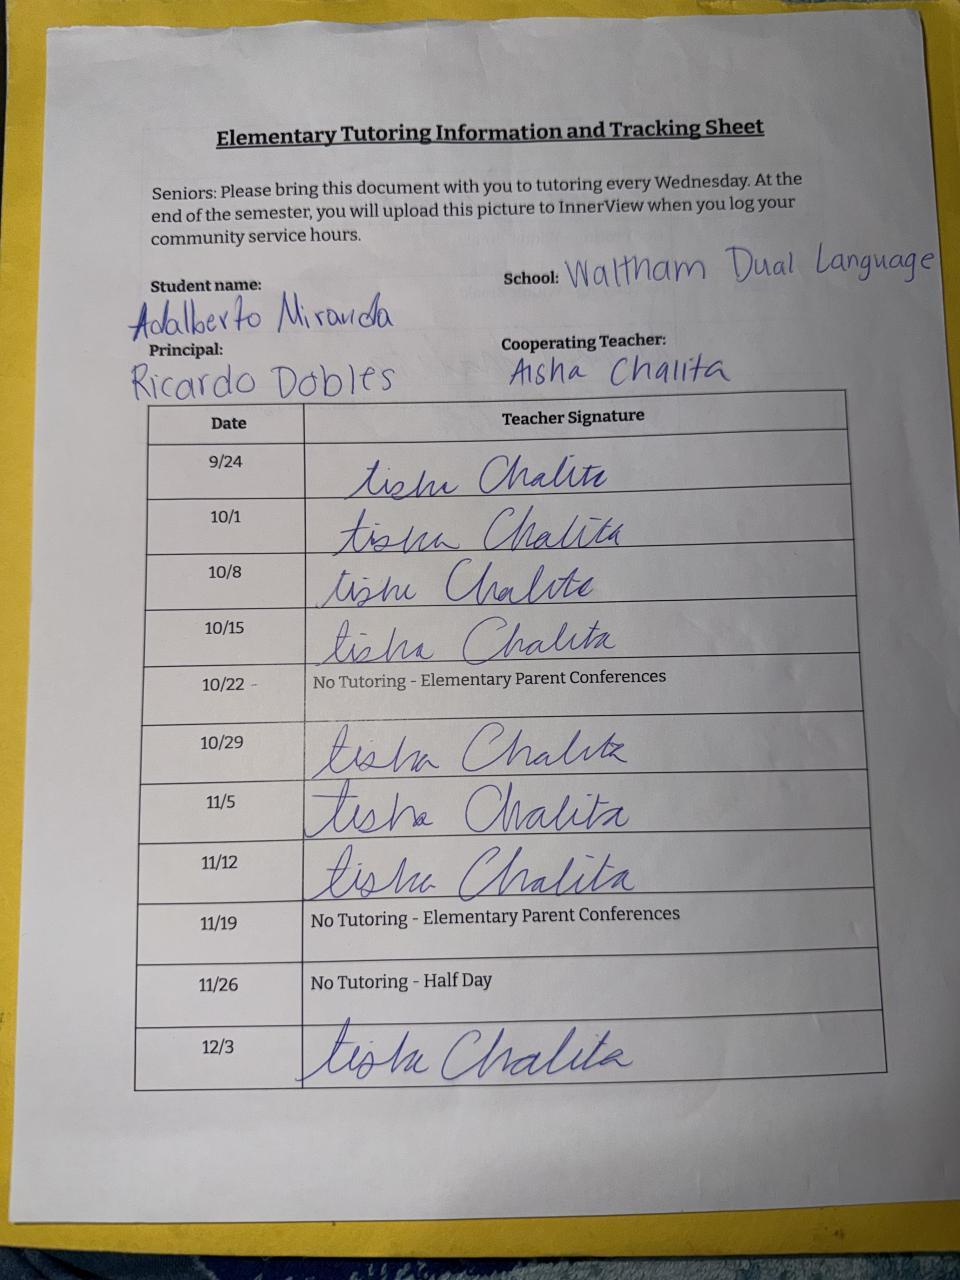 Elementary Tutoring Information and Tracking Sheet
Seniors: Please bring this document with you to tutoring every Wednesday. At the
end of the semester, you will upload this picture to InnerView when you log your
community service hours.
Student name:
Adalberto Miranda
School: Waltham Dual Language
Principal:
Ricardo Dobles
Cooperating Teacher:
Aisha Chalita
Date Teacher Signature
9/24 Aisha Chalita
10/1 Aisha Chalita
10/8 Aisha Chalita
10/15 Aisha Chalita
10/22 - No Tutoring - Elementary Parent Conferences
10/29 Aisha Chalita
11/5 Aisha Chalita
11/12 Aisha Chalita
11/19 No Tutoring - Elementary Parent Conferences
11/26 No Tutoring - Half Day
12/3 Aisha Chalita